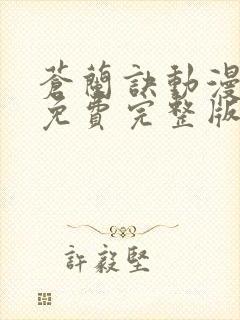 蒼蘭訣動漫
免費完整版
許毅堅